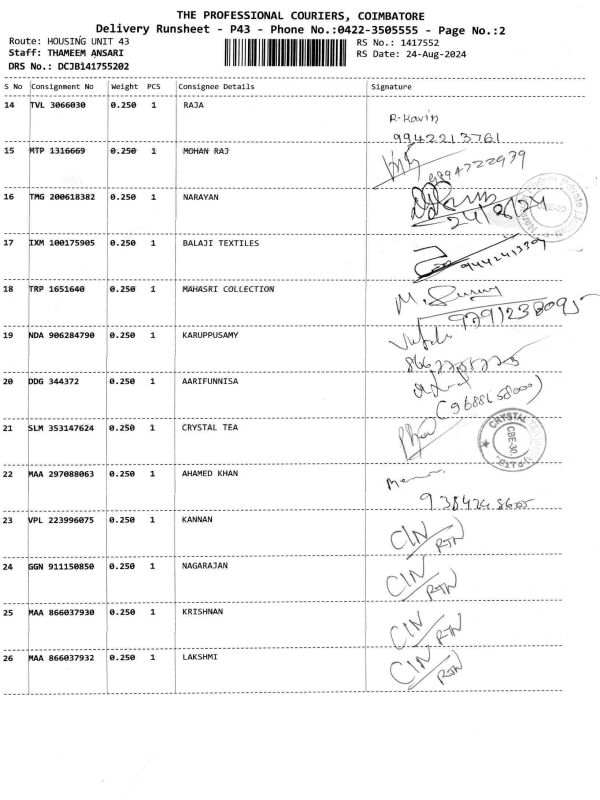 THE PROFESSIONAL COURIERS, COIMBATORE
Delivery Runsheet - P43 - Phone No.:0422-3505555 - Page No.:2
Route: HOUSING UNIT 43 RS No.: 1417552
Staff: THAMEEM ANSARI RS Date: 24-Aug-2024
DRS No.: DCJB141755202
S No Consignment No Weight PCS Consignee Details Signature
14 TVL 3066030 0.250 1 RAJA R.Kavin
9942213761
15 MTP 1316669 0.250 1 MOHAN RAJ 9894722979
16 TMG 200618382 0.250 1 NARAYAN
24/8/24 CBE-30
17 IXM 100175905 0.250 1 BALAJI TEXTILES
18 TRP 1651640 0.250 1 MAHASRI COLLECTION M.
9791238095
19 NDA 906284790 0.250 1 KARUPPUSAMY
20 DDG 344372 0.250 1 AARIFUNNISA
21 SLM 353147624 0.250 1 CRYSTAL TEA CRYSTAL
CBE-30.
22 MAA 297088063 0.250 1 AHAMED KHAN
23 VPL 223996075 0.250 1 KANNAN CIN/RTN
24 GGN 911150850 0.250 1 NAGARAJAN CIN/RTN
25 MAA 866037930 0.250 1 KRISHNAN CIN/RTN
26 MAA 866037932 0.250 1 LAKSHMI CIN/RTN